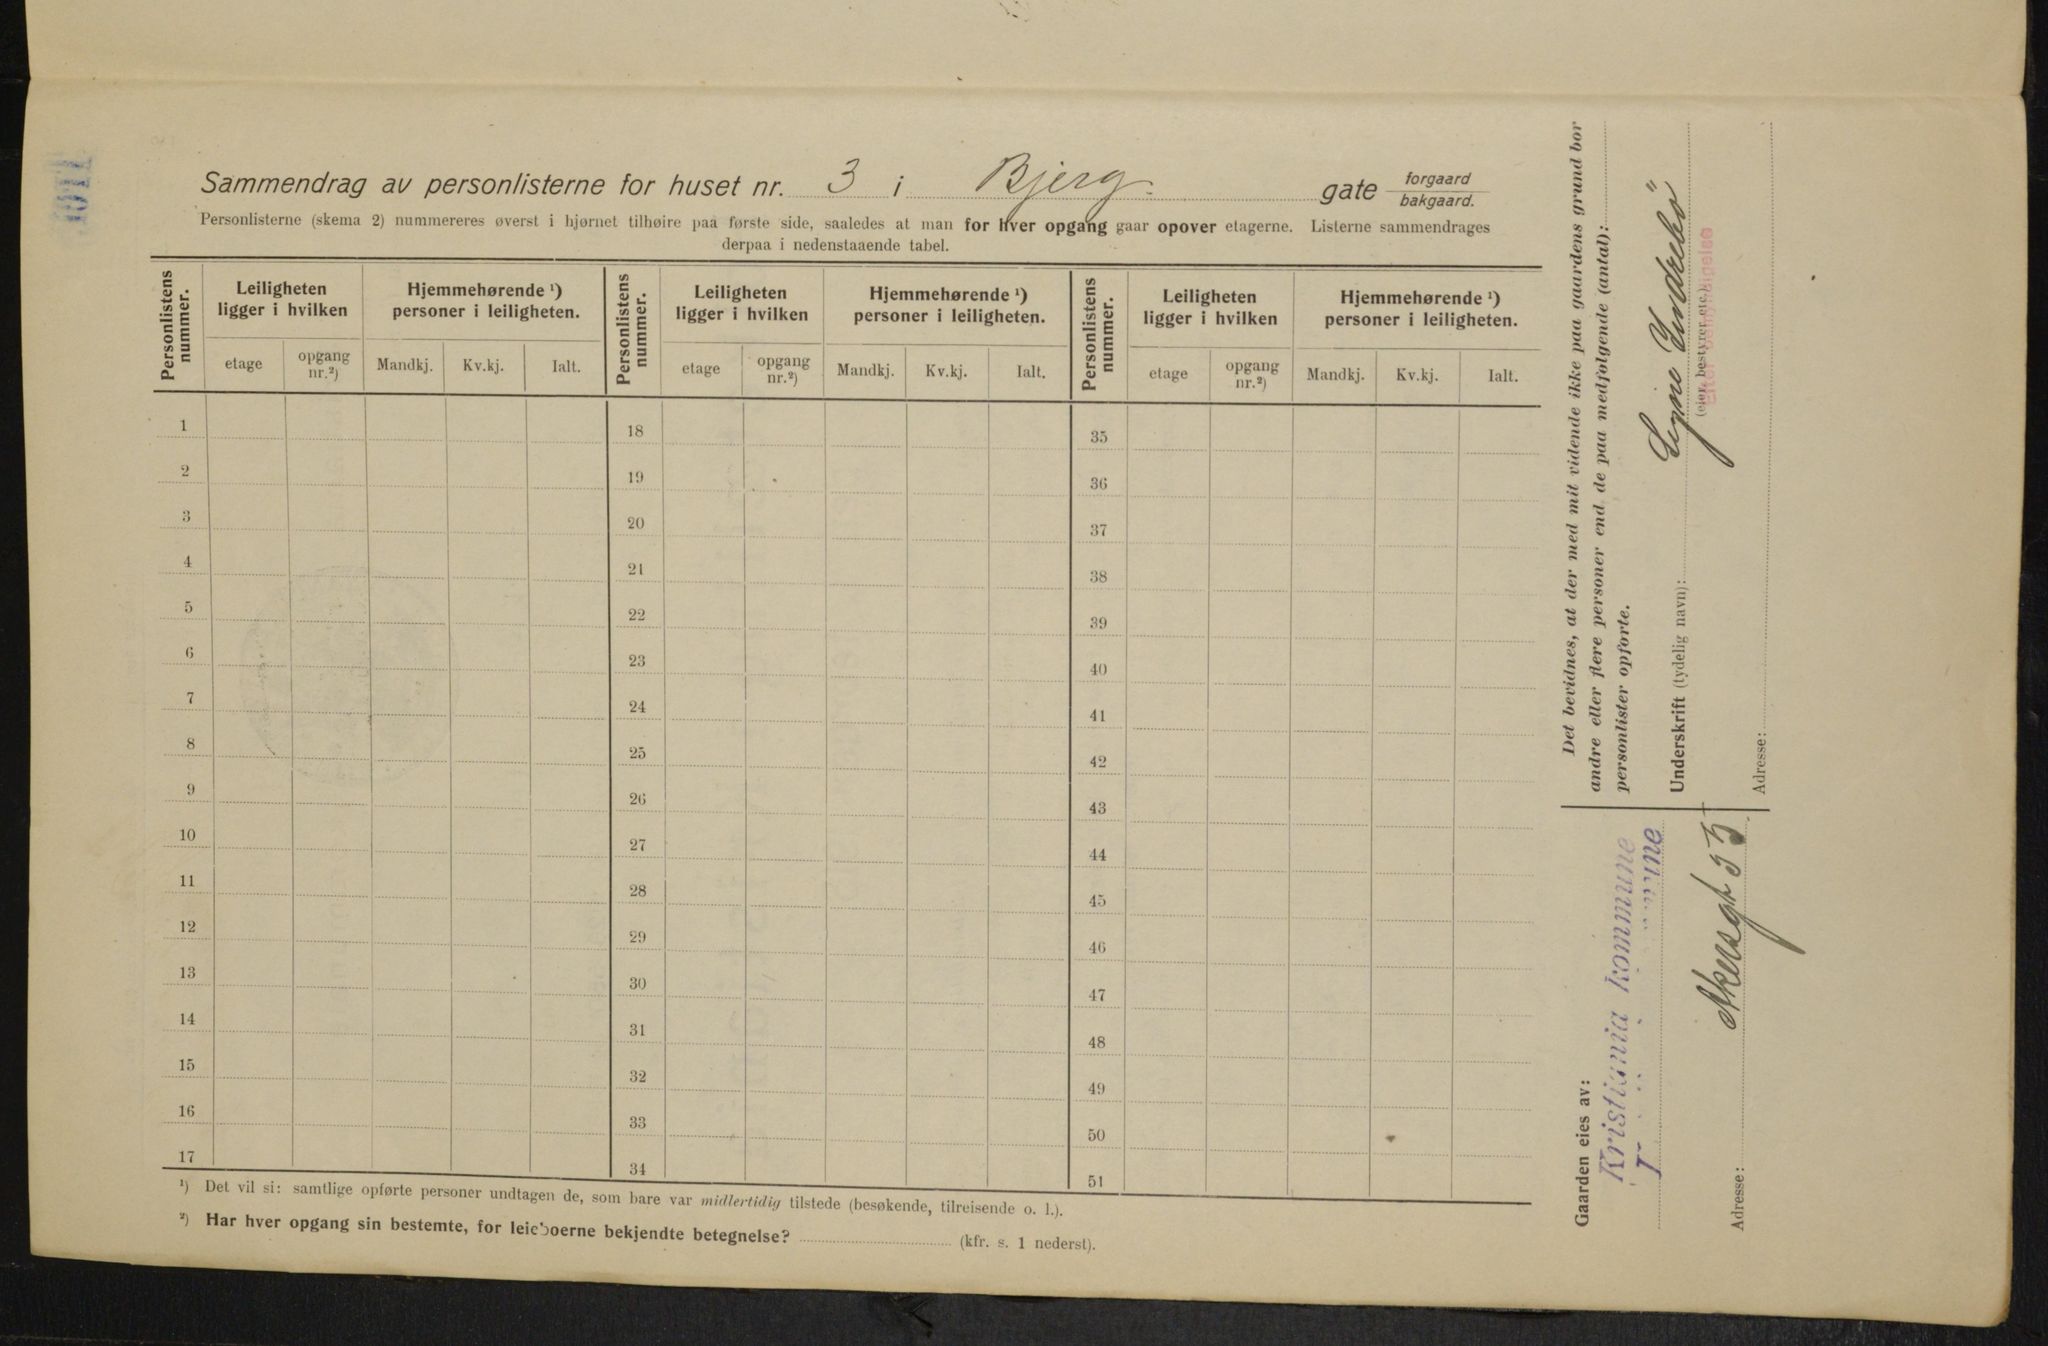 Sammendrag av personlisterne for huset nr. 3 i Bjerg gate forgaard
bakgaard.
Personlisterne (skema 2) nummereres øverst i hjørnet tilhøire paa første side, saaledes at man for hver opgang gaar opover etagerne. Listerne sammendrages
derpaa i nedenstaaende tabel.
Personlistens nummer. Leiligheten ligger i hvilken Hjemmehørende ¹) personer i leiligheten. Personlistens nummer. Leiligheten ligger i hvilken Hjemmehørende ¹) personer i leiligheten. Personlistens nummer. Leiligheten ligger i hvilken Hjemmehørende ¹) personer i leiligheten.
etage opgang nr.²) Mandkj. Kv.kj. Ialt. etage opgang nr.²) Mandkj. Kv.kj. Ialt. etage opgang nr.²) Mandkj. Kv.kj. Ialt.
1 18 35
2 19 36
3 20 37
4 21 38
5 22 39
6 23 40
7 24 41
8 25 42
9 26 43
10 27 44
11 28 45
12 29 46
13 30 47
14 31 48
15 32 49
16 33 50
17 34 51
¹) Det vil si: samtlige opførte personer undtagen de, som bare var midlertidig tilstede (besøkende, tilreisende o. l.).
²) Har hver opgang sin bestemte, for leieboerne bekjendte betegnelse? (kfr. s. 1 nederst).
Det bevidnes, at der med mit vidende ikke paa gaardens grund bor
andre eller flere personer end de paa medfølgende (antal):
personlister opførte.
Underskrift (tydelig navn): Signe Indrebö
(eier, bestyrer etc.)
Efter bemyndigelse
Adresse:
Gaarden eies av:
Kristiania kommune
Adresse: Akersgt 55